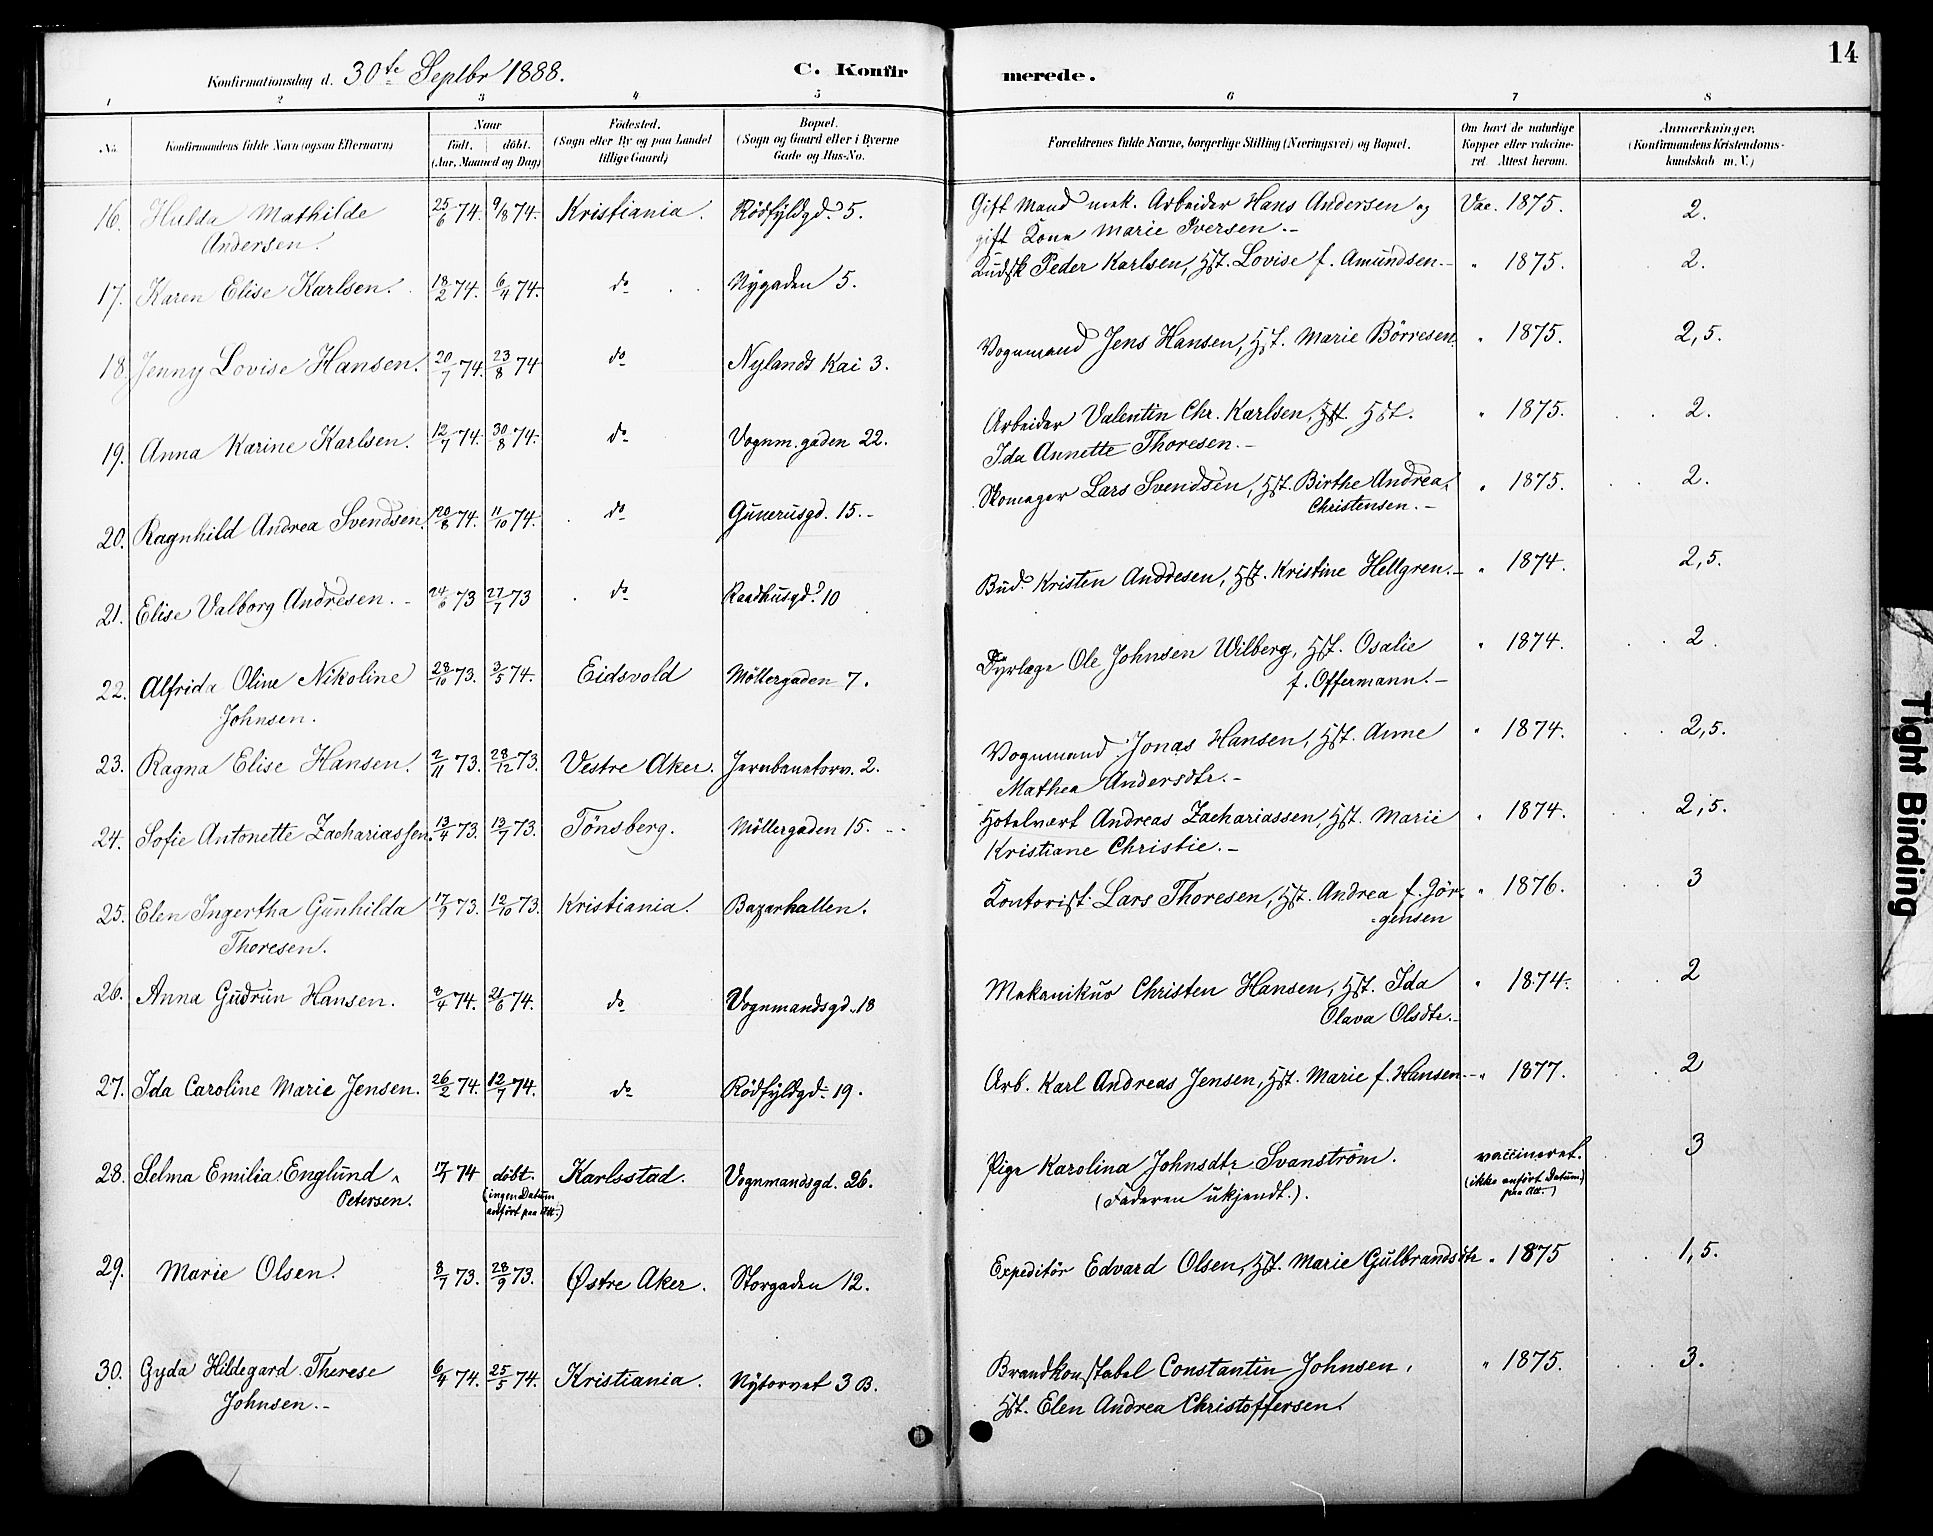 14
Konfirmationsdag d. 30te Septbr 1888. C. Konfir merede.
1 2 3 4 5 6 7 8
No. Konfirmandens fulde Navn (ogsaa Efternavn) Naar födt. döbt. (Aar, Maaned og Dag) Födested. (Sogn eller By og paa Landet tillige Gaard) Bopæl. (Sogn og Gaard eller i Byerne Gade og Hus-No. Forældrenes fulde Navne, borgerlige Stilling (Næringsvei) og Bopæl. Om havt de naturlige Kopper eller vakcineret. Attest herom. Anmærkninger. (Konfirmandens Kristendomskundskab m. V.)
16. Hulda Mathilde 25/6 74. 9/8 74. Kristiania. Rödfyldgd. 5. Gift Mand mek. Arbeider Hans Andersen og Vac. 1875. 2.
Andersen. gift Kone Marie Iversen.-
17. Karen Elise Karlsen. 18/2 74. 6/4 74. do Nygaden 5. Kudsk Peder Karlsen, Hst. Lovise f. Amundsen.- " 1875. 2.
18. Jenny Lovise Hansen. 20/7 74. 23/8 74 do Nylands Kai 3. Vognmand Jens Hansen, Hst. Marie Börresen. " 1875. 2,5.
19. Anna Karine Karlsen. 12/7 74. 30/8 74. do Vognm.gaden 22. Arbeider Valentin Chr. Karlsen, Hst. Hst. " 1875. 2.
Ida Annette Thoresen.-
20. Ragnhild Andrea Svendsen. 20/8 74. 11/10 74. do Gunerusgd. 15.- Skomager Lars Svendsen, Hst. Birthe Andrea " 1875. 2.
Christensen.-
21. Elise Valborg Andresen.- 24/6 73 27/7 73 do Raadhusgd. 10 Bud Kristen Anddesen, Hst. Kristine Hellgren.- " 1874. 2,5.
22. Alfrida Oline Nikoline 28/10 73. 3/5 74. Eidsvold Möllergaden 7. Dyrlæge Ole Johnsen Wilberg, Hst. Osalie " 1874. 2.
Johnsen. f. Offermann.-
23. Ragna Elise Hansen. 2/11 73. 28/12 73. Vestre Aker. Jernbanetorv. 2. Vognmand Jonas Hansen, Hst. Anne " 1874. 2,5.
Mathea Andersdtr.-
24. Sofie Antonette Zachariassen. 13/4 73. 13/7 73. Tönsberg. Möllergaden 15. Hotelvært Andreas Zachariassen, Hst. Marie " 1874. 2,5.
Kristiane Christie.-
25. Elen Ingertha Gunhilda 17/9 73. 12/10 73. Kristiania. Bazarhallen. Kontorist Lars Thoresen, Hst. Andrea f. Jör- " 1876. 3
Thoresen. gensen
26. Anna Gudrun Hansen. 3/4 74. 21/6 74. do Vognmandsgd. 18 Mekanikus Christen Hansen, Hst. Ida " 1874. 2
Olava Olsdtr.-
27. Ida Caroline Marie Jensen. 26/2 74. 12/7 74. do Rödfyldgd. 19. Arb. Karl Andreas Jensen, Hst. Marie f. Hansen.- " 1877. 2
28. Selma Emilia Englund, 17/1 74 döbt. Karlsstad. Vognmandsgd. 26. Pige Karolina Johnsdtr Svanström. vaccineret. 3
Petersen. (ingen Datum anfört paa Att.) (Faderen ukjendt.). (ikke anfört Datum paa Att.)
29. Marie Olsen. 8/7 73. 28/9 73. Østre Aker. Storgaden 12. Expeditör Edvard Olsen, Hst. Marie Gulbrandsdtr " 1875 1,5.
30. Gyda Hildegard Therese 6/4 74. 25/5 74. Kristiania. Nytorvet 3 B. Brandkonstabel Constantin Johnsen, " 1875. 3.
Johnsen.- Hst. Elen Andrea Christoffersen.
Tight Binding